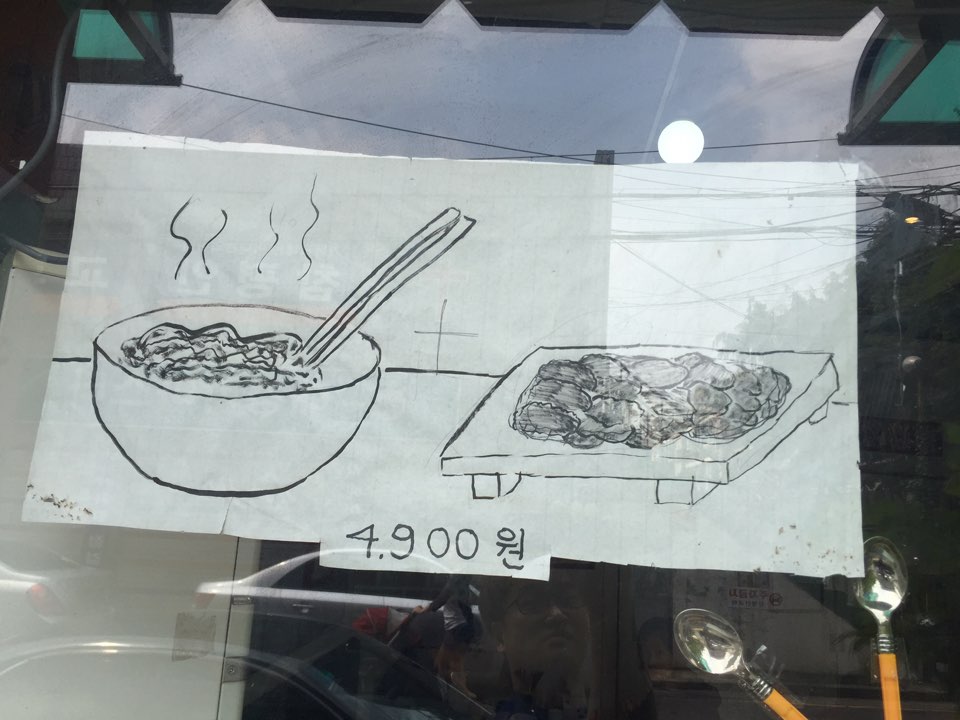 4.900원